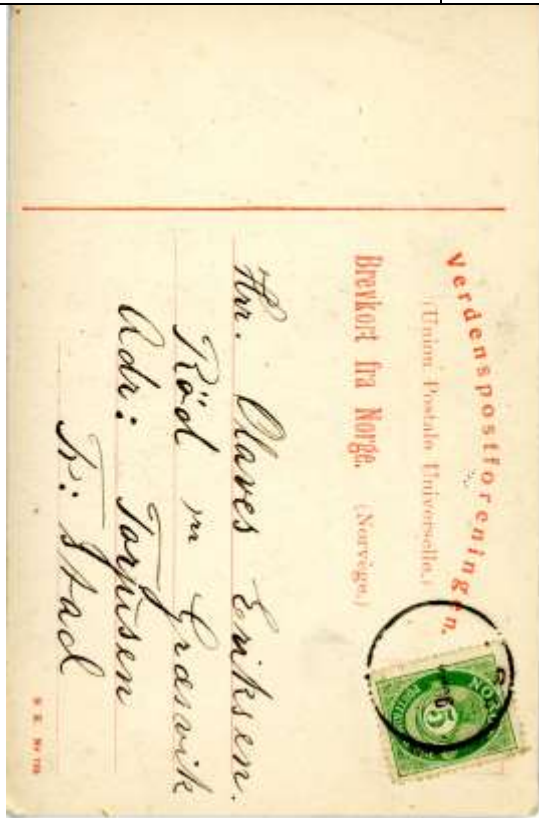 Verdenspostforeningen.
(Union Postale Universelle.)
Brevkort fra Norge. (Norvége.)
NORGE
5
Hrr. Olaves Eriksen.
Röd pr Græsvik
Adr: Torjusen
Fr: Stad